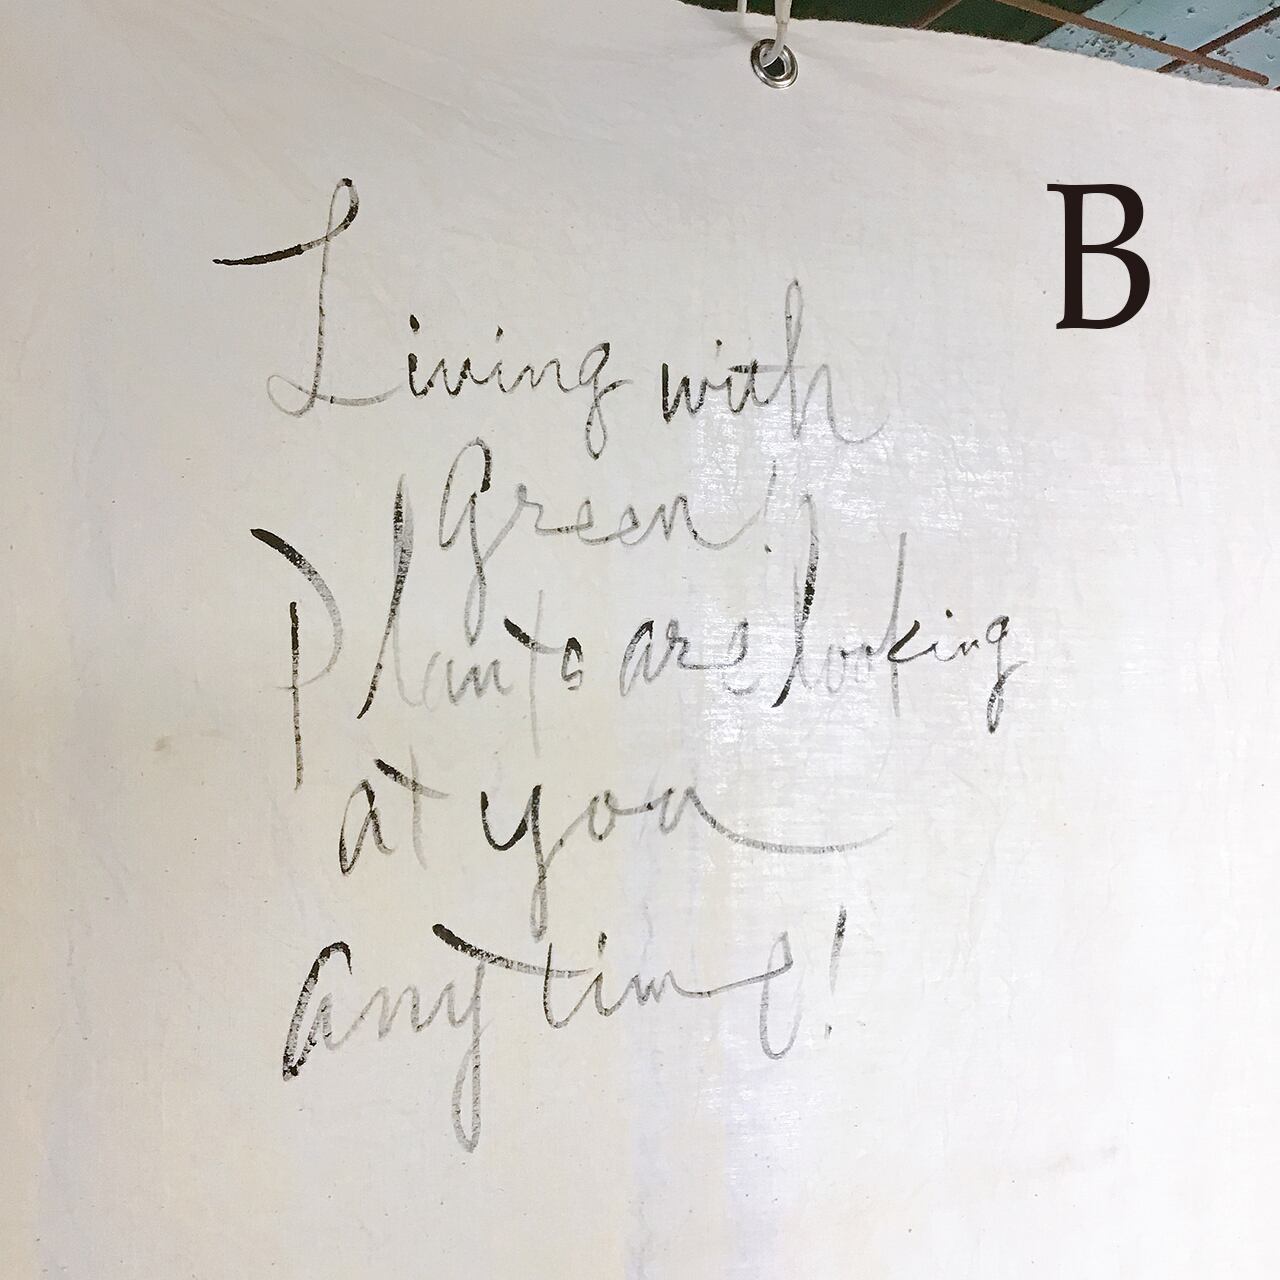 B
Living with
green!
Plants are looking
at you
anytime!